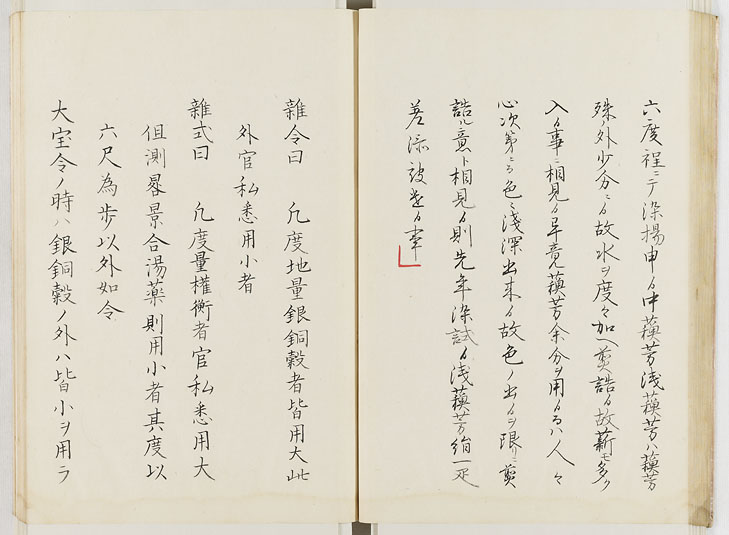 六度程ニテ染揚申候中蘓芳浅蘓芳ハ蘓芳
殊ノ外少分ニ候故水ヲ度々加ヘ煎詰候故薪モ多ク
入候事ニ相見候畢竟蘓芳余分ヲ用候ハ人々
心次第ニ而色ニ浅深出来候故色ノ出候ヲ限ニ煎
詰候意ト相見候則先年染試候浅蘓芳絹一疋
差添被遣候事
雜令曰　凡度地量銀銅穀者皆用大此
外官私悉用小者
雜式曰　凡度量權衡者官私悉用大
但測晷景合湯藥則用小者其度以
六尺為歩以外如令
大宝令ノ時ハ銀銅穀ノ外ハ皆小ヲ用ラ